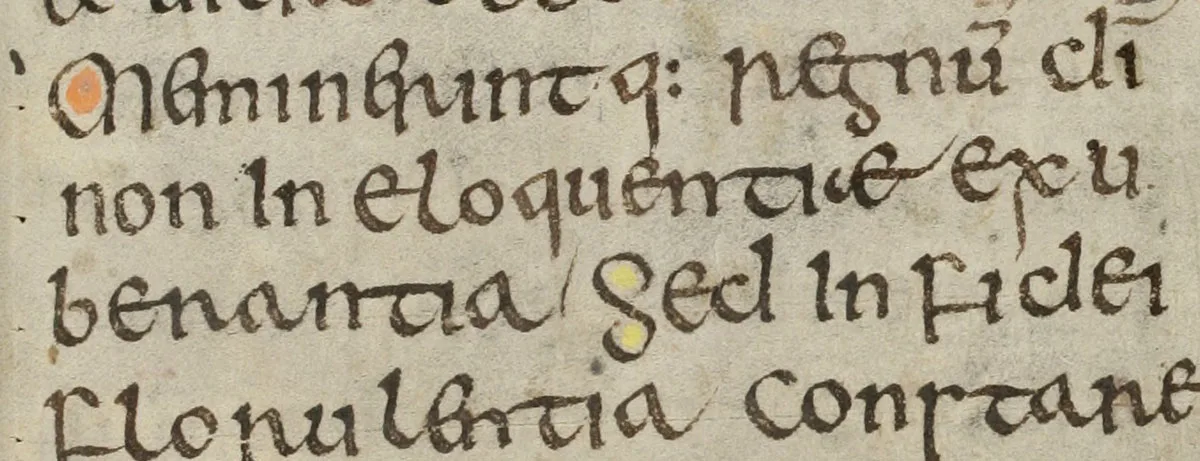 Meminerint q: regnū dī
non In eloquentiae exu
berantia Sed In fidei
florulentia constare